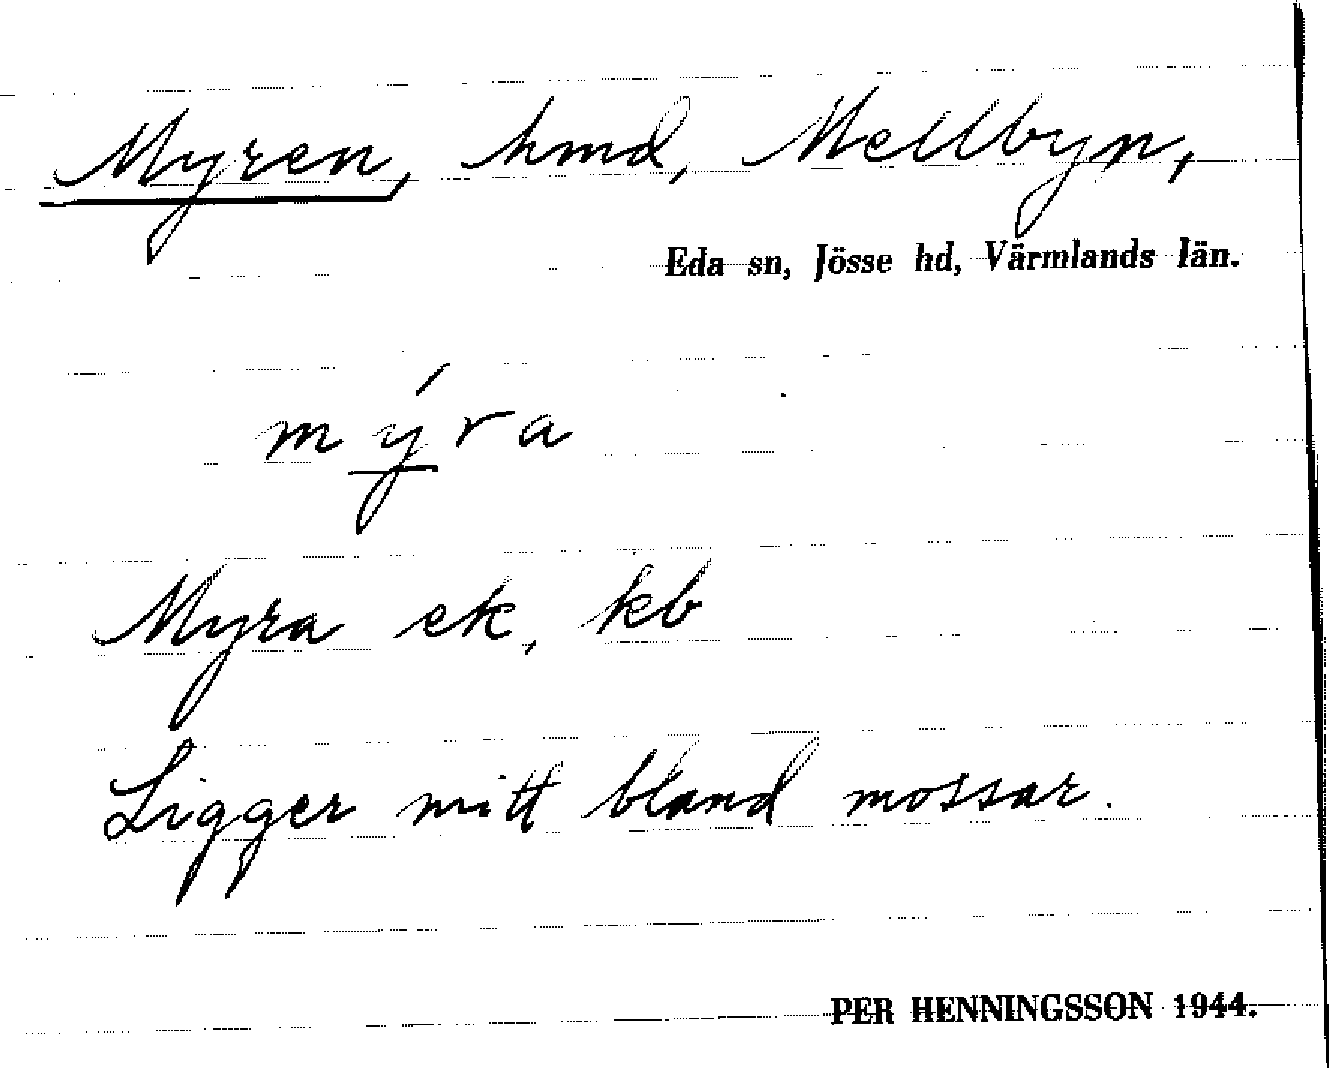 Myren, hmd, Mellbyn,
Eda sn, Jösse hd, Värmlands län.
mýra
Myra ek, kb
Ligger mitt bland mossar.
PER HENNINGSSON 1944.